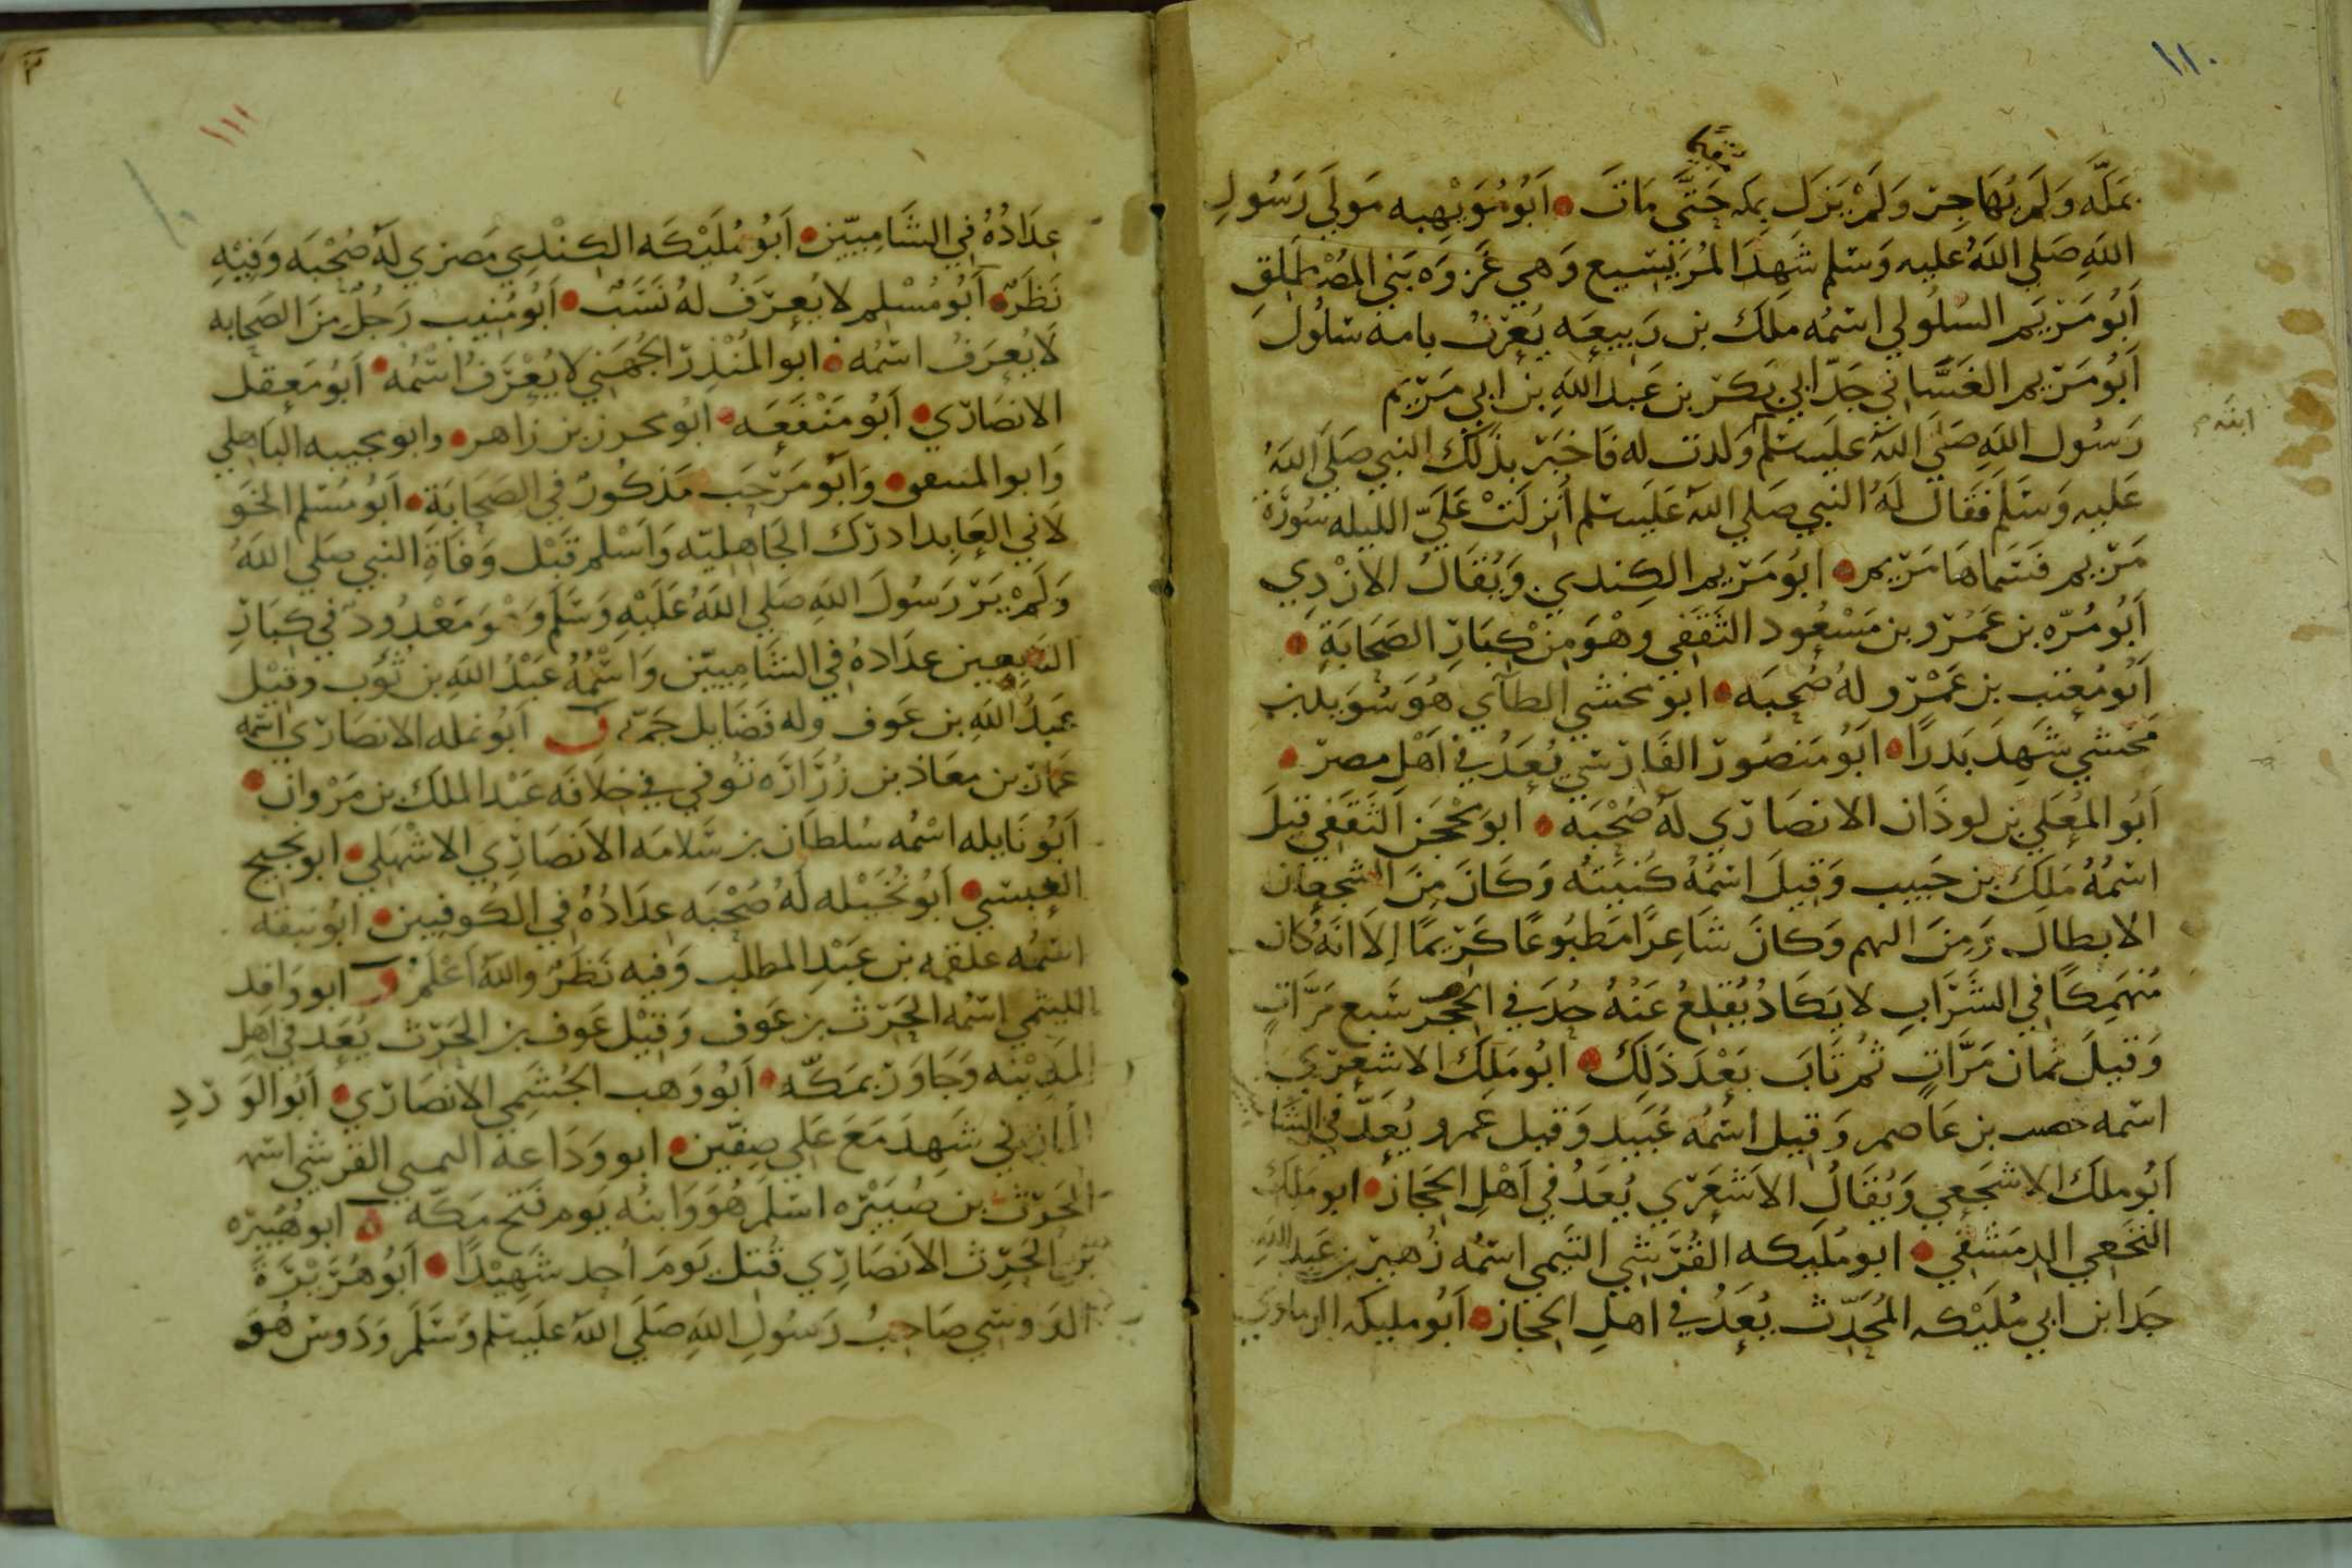 ١١٠
بمكَّه وَلَم يُهَاجِر وَلَمْ يَزَل بمكه حَتَّى مَاتَ أَبُو مُوَيْهِبه مَولَى رَسُولِ
اللَّهِ صَلي اللَّهُ عليه وَسَلم شَهِدَ المُرَيْسِيع وَهي غَزوَه بَني المُصْطَلِقِ
أَبُو مَرْيَم السَلُولي اسمُه ملك بن رَبيعَه يُعرَفُ بامه سَلُولَ
أَبُو مَريم الغَسَّاني جَدّ ابي بَكر بن عَبد اللَّهِ بن ابي مَريم
ابنة
رَسُول اللَّهِ صَلَي اللَّه عليه سلم وَلدت له فَاخبَر بذلك النبي صَلَي اللَّهُ
عَليه وَسَلم فَقَالَ لَهُ النبي صَلي اللَّه عَلَيه سلم أُنزلَتْ عَلَيّ الليله سُورَةُ
مَريم فسَماهَا مَريم ابُو مَريم الكِندي وَيُقَالُ الازْدِي
أَبُو مُرّه بن عَمْرو بن مَسْعُود الثَقَفي وهْوَ مِنْ كِبَارِ الصَحَابَةِ
أَبُو مُعَتب بن عَمْرو لهُ صُحبَه ابو مخشي الطآي هُوَ سُوَيد بن
مَخشي شَهِدَ بَدرًا ابُو مَنصُور الفَارسي يُعَدُ في اَهْلِ مصر
أَبُو المُعَلي بن لوذَان الانصَاري لَهُ صُحْبَه ابو مِحْجَن الثَقَفي قيلَ
اسمُهُ مَلك بن حَبيب وَقِيلَ اسمُهُ كُنيَتُه وَكَانَ مِنَ الشجعان
الابطال وَمِنَ البهم وَكَانَ شَاعِرًا مَطبُوعًا كَريمًا اِلا انَهُ كان
مُنهَمِكًا في الشَرَابِ لا يَكَادُ يُقلِعُ عَنهُ حُدَ في الخمر سَبع مَرَّاتٍ
وَقيلَ ثمان مَرَّاتٍ ثُم تَابَ بَعْدَ ذَلِكَ ابُو مَلِك الاشعَري
اسمه بن عَاصم وَقيل اسمُه عُبَيد وَقيل عمرو يُعَدّ في الشا
أَبُو ملك الاشجَعي وَيُقَالُ الاَشعَري يُعَدُ في اَهْلِ الحجَاز ابو ملك
النخَعي الدمشقي ابو مُلَيكه القُرَشي التيمي اسمُه زُهَير بن عَبد اللَّهِ
جَد ابن ابي مُلَيْكه المُحَدّث يُعَدُ في اهلِ الحجَاز أَبُو مليكه
١١١
عِدَادُهُ في الشَامِيّين أَبُو مُلَيْكَه الكِنْدي مَصري لَهُ صُحْبَه وَفِيْهِ
نَظَرٌ أَبُو مُسْلم لا يُعرَفُ لهُ نَسَبٌ أَبُو مُنيب رَجُلٌ مِنَ الصَحابه
لَا يُعرَفُ اسمُه ابو المُنْذِر الجُهَني لا يُعْرَفُ اسْمُه أَبُو مَعقل
الانصَاري أَبُو مَنْفَعَه ابُو محرز بن زاهر وابو مجيبه البَاهلي
وَابو المنتفق وَأَبُو مَرحَب مَذكُورٌ في الصَحَابَة أَبُو مُسْلم الخَو
لَاني العَابد ادرَك الجَاهِليّه وَاَسْلم قَبْل وَفَاةِ النبي صَلي اللَّهُ
وَلَمْ يَرَ رَسُولَ اللَّهِ صَلي اللَّهُ عَلَيْهِ وَسَلَم وَهْوَ مَعْدُودٌ في كِبَارِ
التابِعين عدَادهُ في الشَامِييّن وَاسْمُهُ عَبْدُ اللَّهِ بن ثُوَب وقيْل
عَبدُ اللَّهِ بن عَوف وله فَضَايل جَمّه ن أَبُو نمله الانصَاري اسمه
عَمَّار بن معَاذ بن زُرَارَه تُوفي في خِلَافَه عَبْد الملك بن مَرْوان
أَبُو نَايله اسْمُه سُلطان بن سَلامَه الاَنصَارِي الاشهَلي ابو نجيح
العَبسي أَبُو نُخَيْله لَهُ صُحْبَه عِدَادُهُ في الكُوفيين ابُو نبقه
اسْمُه علقمه بن عَبْدِ المطلب وَفيه نَظَرٌ واللَّهُ اَعْلَمُ و ابو وَاقِد
الليثي اسْمُه الحَرث بن عَوف وَقيْل عَوف بن الحَرث يُعَد في اَهل
المَدِيْنه وَجَاوَرَ بمَكّه أَبُو وَهب الجُشَمي الانصَاري أَبُو الوَرْدِ
المَازِني شَهِدَ مَعَ عَلي صِفّين ابو وَدَاعة السهمي القرَشي اسمه
الحَرث بن صُبَيْرَه اسلَم هُوَ وَابنُه يَوم فَتح مَكّه ه ابو هُبَيْرَه
بن الحَرث الاَنصَارِي قُتل يَومَ اُحد شَهِيْدًا أَبُو هُرَيْرَةَ
الدَوسي صَاحِبُ رَسُولِ اللَّهِ صَلَي اللَّهُ عليه سلم وَسَلَم وَدَوس هُوَ